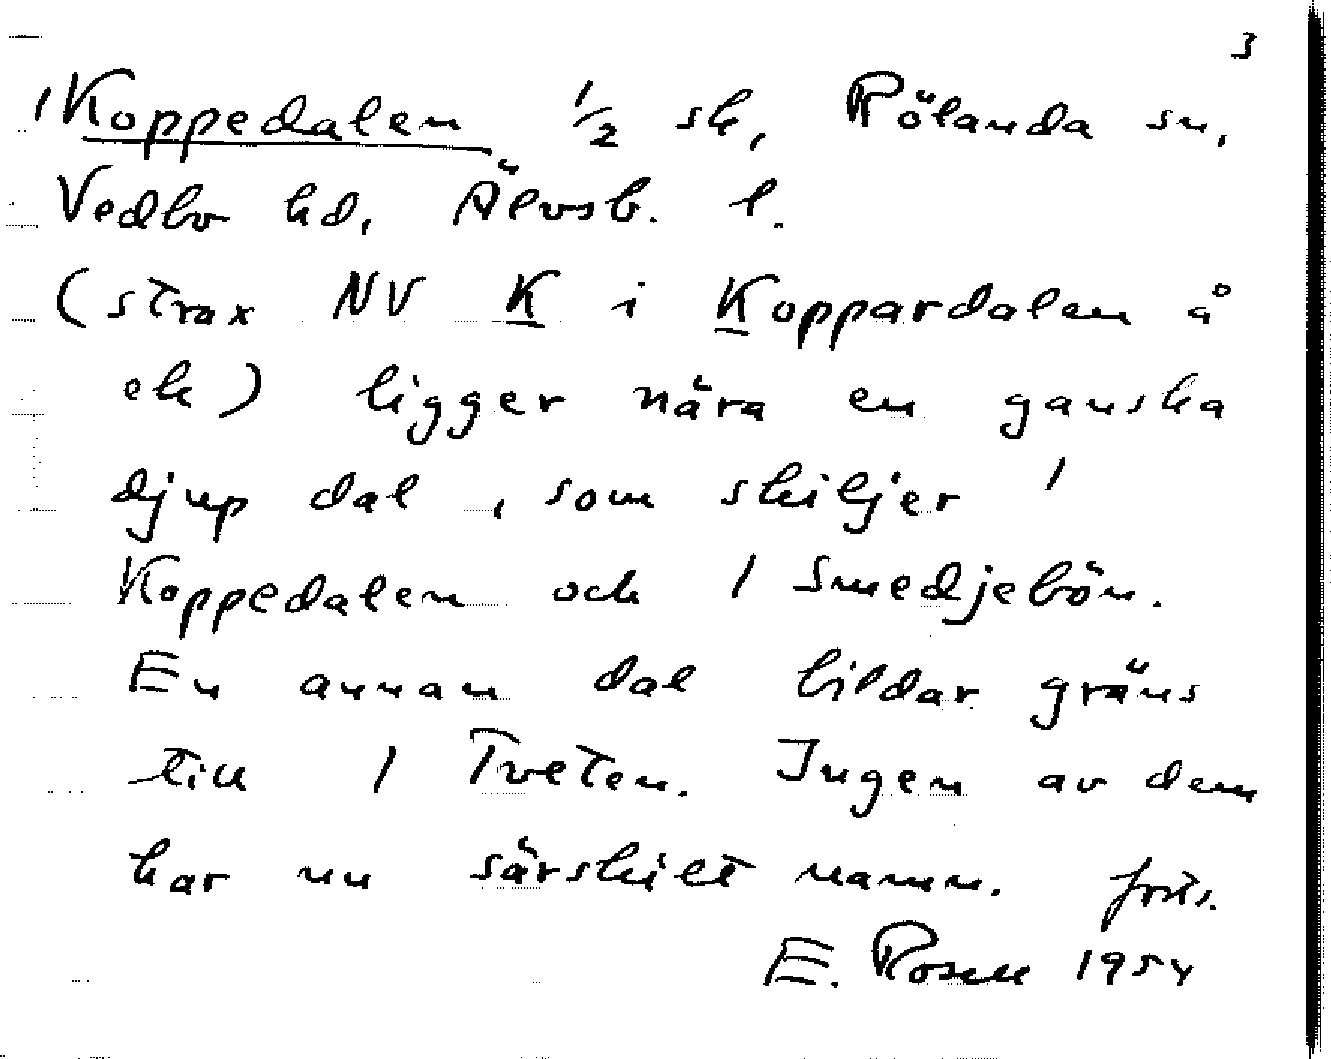 3
1 Koppedalen 1/2 sk, Rölanda sn,
Vedbo hd, Älvsb. l.
(strax NV K i Koppardalen å
ek) ligger nära en ganska
djup dal, som skiljer 1
Koppedalen och 1 Smedjebön.
En annan dal bildar gräns
till 1 Tveten. Ingen av dem
har nu särskilt namn. forts.
E. Rosell 1954